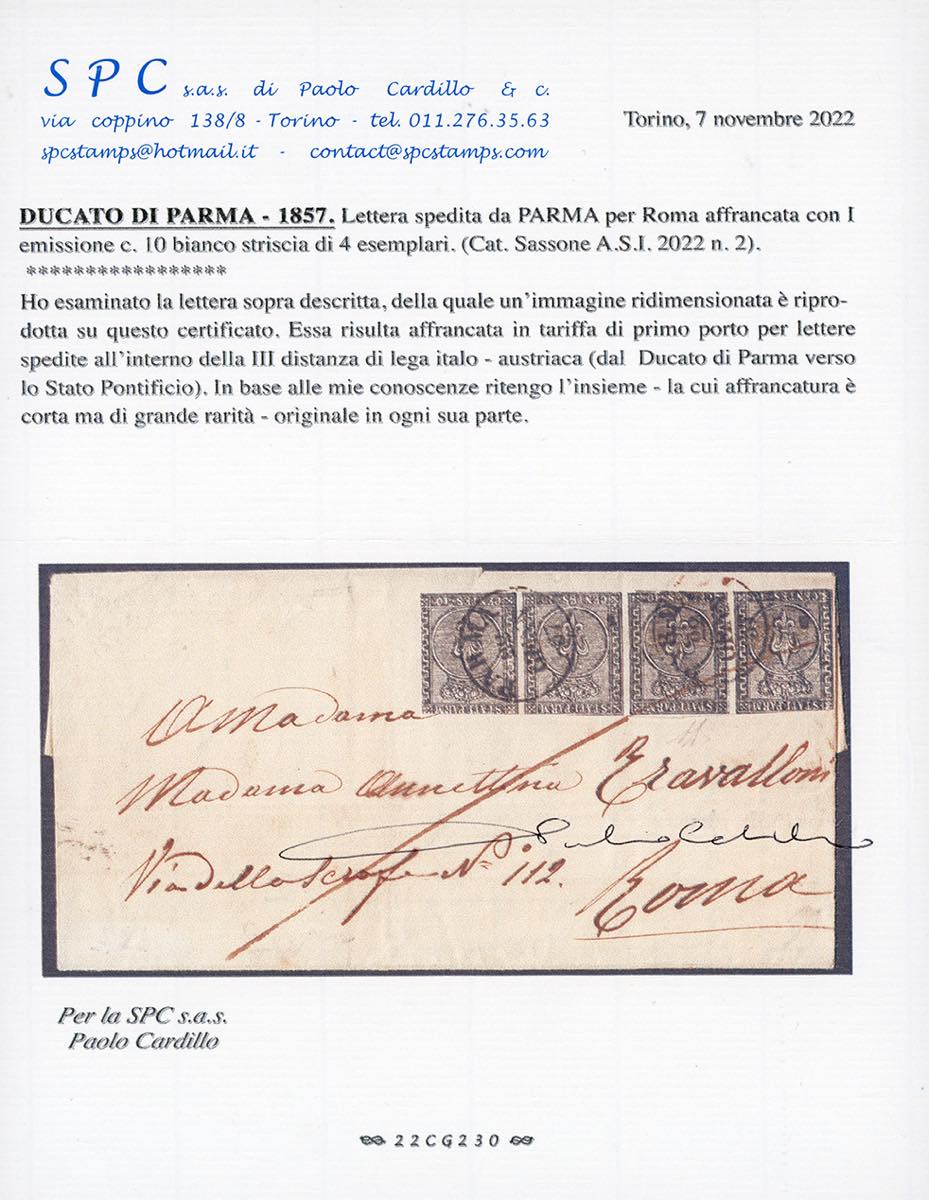 SPC s.a.s. di Paolo Cardillo & c.
via coppino 138/8 - Torino - tel. 011.276.35.63
spcstamps@hotmail.it - contact@spcstamps.com
Torino, 7 novembre 2022
DUCATO DI PARMA - 1857. Lettera spedita da PARMA per Roma affrancata con I
emissione c. 10 bianco striscia di 4 esemplari. (Cat. Sassone A.S.I. 2022 n. 2).
*****************
Ho esaminato la lettera sopra descritta, della quale un'immagine ridimensionata è ripro-
dotta su questo certificato. Essa risulta affrancata in tariffa di primo porto per lettere
spedite all'interno della III distanza di lega italo - austriaca (dal Ducato di Parma verso
lo Stato Pontificio). In base alle mie conoscenze ritengo l'insieme - la cui affrancatura è
corta ma di grande rarità - originale in ogni sua parte.
CENTES. 10 CENTES. 10 CENTES. 10 CENTES. 10
STATI PARM. STATI PARM. STATI PARM. STATI PARM.
A Madama
Madama Annettina Zravalloni
Via della Scrofa N° 112.
Roma
Per la SPC s.a.s.
Paolo Cardillo
22CG230